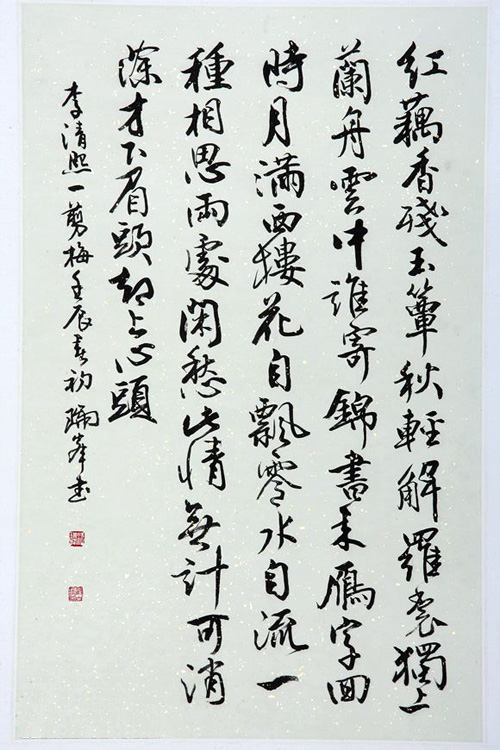 红藕香殘玉簟秋輕解羅裳獨上
蘭舟雲中誰寄錦書来鴈字回
時月滿西樓花自飄零水自流一
種相思兩處閑愁此情無計可消
除才下眉頭却上心頭
李清照一剪梅壬辰春初峰书